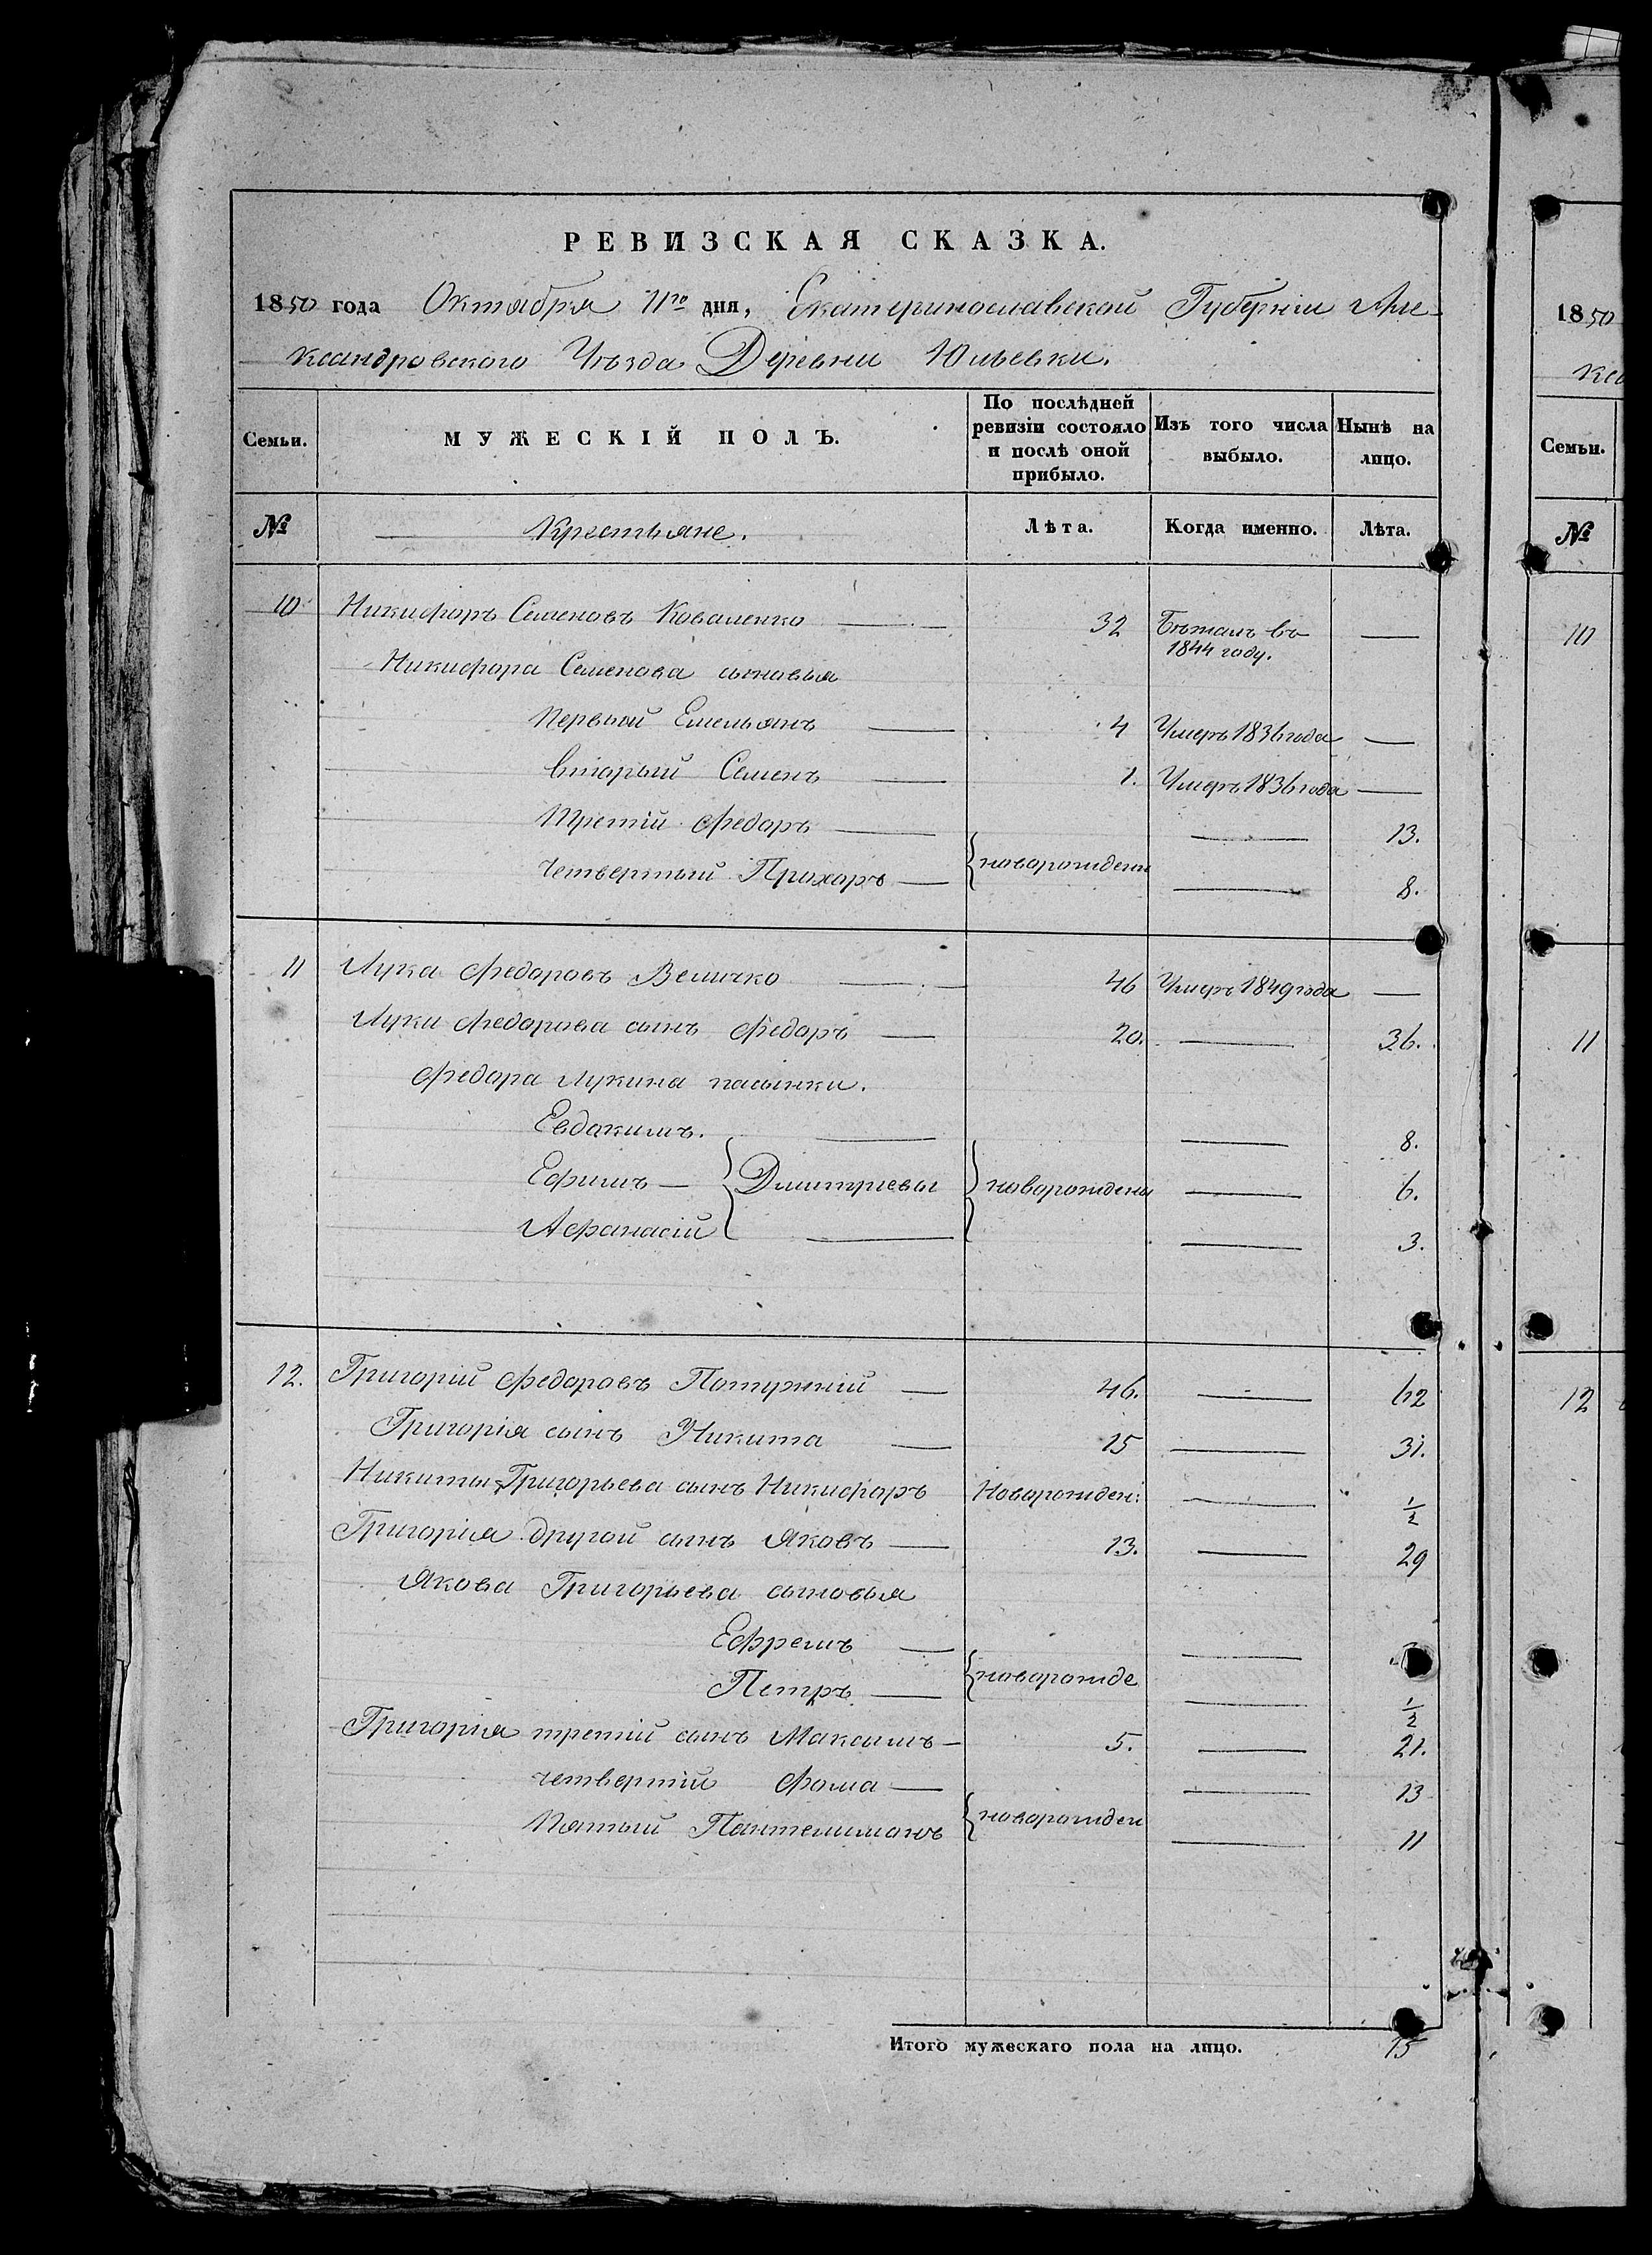 РЕВИЗСКАЯ СКАЗКА.
1850 года Октября 11го дня, Екатеринославской Губерніи Але-
ксандровского Уѣзда Деревни Юльевки.
Семьи. МУЖЕСКІЙ ПОЛЪ. По послѣдней ревизіи состояло и послѣ оной прибыло. Изъ того числа выбыло. Нынѣ на лицо.
№ Крестьяне. Лѣта. Когда именно. Лѣта.
10 Никифоръ Семеновъ Коваленко — 32 Бѣжалъ въ 1844 году. —
Никифора Семенова сыновья
Первый Емельянъ — 4 Умеръ 1836 года —
вторый Семенъ — 1. Умеръ 1836 года —
Третій Федоръ — — 13.
четвертый Прохоръ — новорожден — 8.
11 Лука Федоровъ Величко — 46 Умеръ 1849 года —
Луки Федорова сынъ Федоръ — 20. — 36.
Федора Лукина пасынки.
Евдокимъ. — — 8.
Ефимъ — Дмитріевы новорождены — 6.
Афанасій — — 3.
12. Григорій Федоровъ Потужній — 46. — 62
Григорія сынъ Никита — 15 — 31.
Никиты Григорьева сынъ Никифоръ Новорожден: — 1/2
Григорія другой сынъ Яковъ — 13. — 29
Якова Григорьева сыновья
Ефремъ — —
Петръ — новорожде — 1/2
Григорія третій сынъ Максимъ — 5. — 21.
четвертій Фома — — 13
Пятый Пантелимонъ новорожден — 11
Итого мужескаго пола на лицо. 15
1850
Семьи.
№
10
11
12